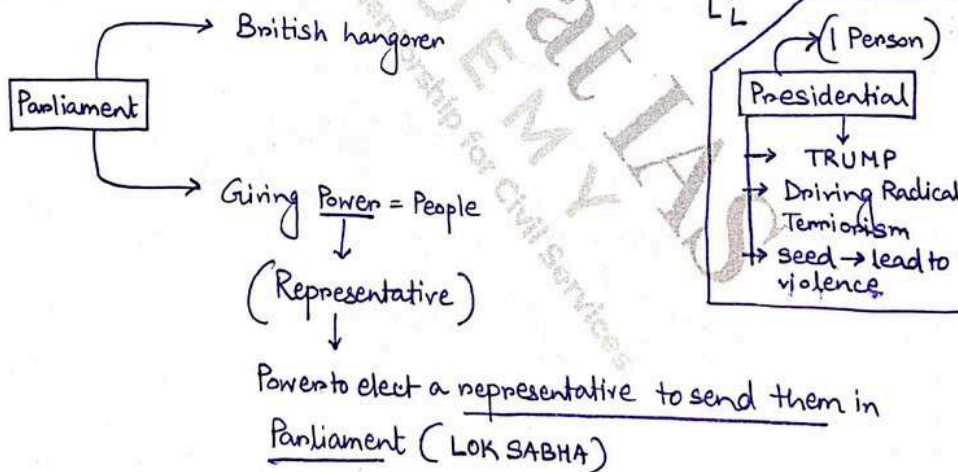 British hangover
Parliament
Giving Power = People
(Representative)
Power to elect a representative to send them in
Parliament (LOK SABHA)
(1 Person)
Presidential
→ TRUMP
→ Driving Radical
Terriorism
→ seed → lead to
violence
IAS
EMY
for Civil Services